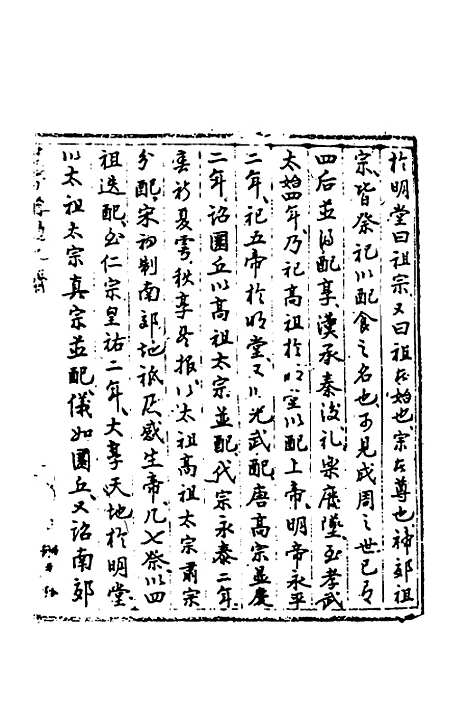 於明堂曰祖宗又曰祖者始也宗者尊也禘郊祖
宗皆祭祀以配食之名也可見成周之世已有
四后並得配享漢承秦後礼樂廢墜至孝武
太始四年乃祀高祖於明堂以配上帝明帝永平
二年祀五帝於明堂又以光武配唐高宗並慶
二年詔圜丘以高祖太宗並配代宗永泰二年
春祈夏雩秋享冬报以太祖高祖太宗肅宗
分配宋初制南郊地祇及感生帝凡七祭以四
祖迭配至仁宗皇祐二年大享天地於明堂
以太祖太宗真宗並配儀如圜丘又詔南郊